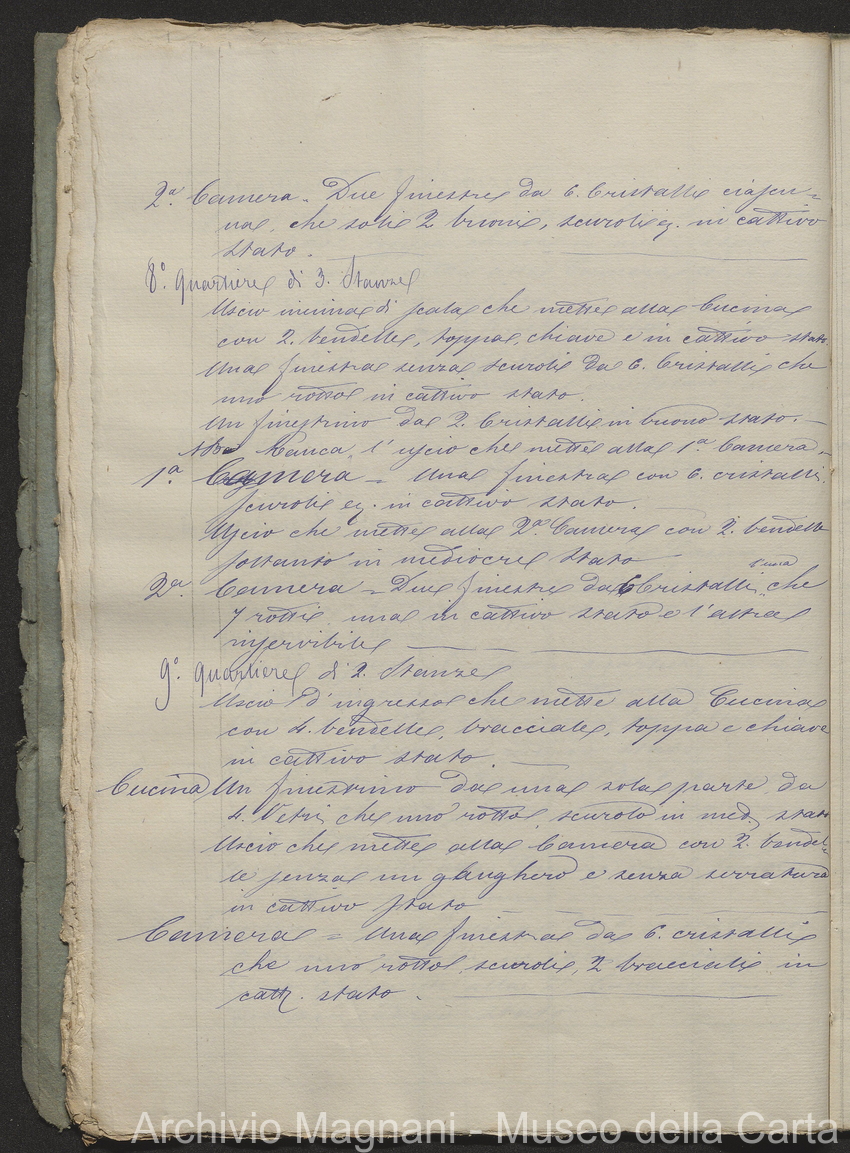 2ª. Camera = Due finestre da 6. Cristalli ciascu=
na, che soli 2 buoni, scuroli eg. in cattivo
stato.
8º. Quartiere di 3. Stanze
Uscio in cima di scala che mette alla Cucina
con 2. bendelle, toppa, chiave e in cattivo stato
Una finestra senza scuroli da 6. Cristalli che
uno rotto in cattivo stato.
Un finestrino da 2. Cristalli in buono stato.
Manca l'uscio che mette alla 1ª. Camera.
1ª. Camera = Una finestra con 6. cristalli
scuroli eg. in cattivo stato.
Uscio che mette alla 2ª. Camera con 2. bendelle
soltanto in mediocre stato
2ª. Camera = Due finestre da 6 Cristalli l'una che
7 rotti una in cattivo stato e l'altra
inservibile
9º. Quartiere di 2. Stanze
Uscio d'ingresso che mette alla Cucina
con 4. bendelle, bracciale, toppa e chiave
in cattivo stato.
Cucina Un finestrino da una sola parte da
4. Vetri che uno rotto, scurolo in med. stato
Uscio che mette alla Camera con 2. bendel=
le senza un ganghero e senza serratura
in cattivo stato
Camera = Una finestra da 6. cristalli
che uno rotto, scuroli, 2 bracciali in
catt. stato.
Archivio Magnani - Museo della Carta